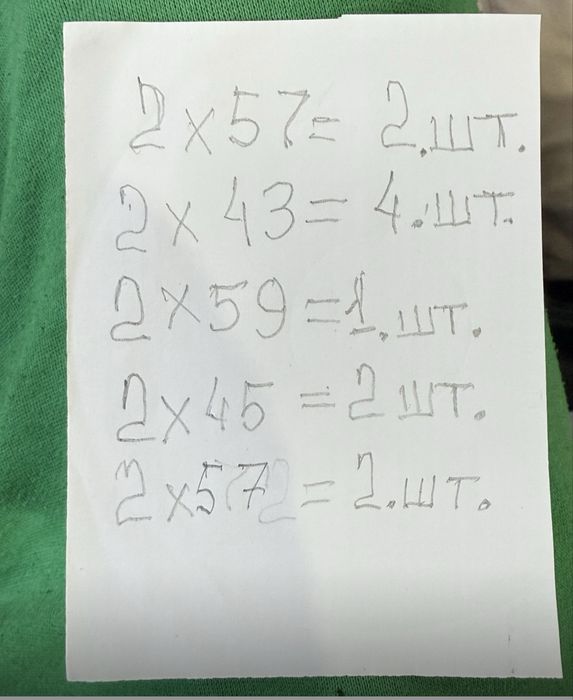 2 x 57 = 2.шт.
2 x 43 = 4.шт.
2 x 59 = 1.шт.
2 x 45 = 2 шт.
2 x 57 = 2.шт.